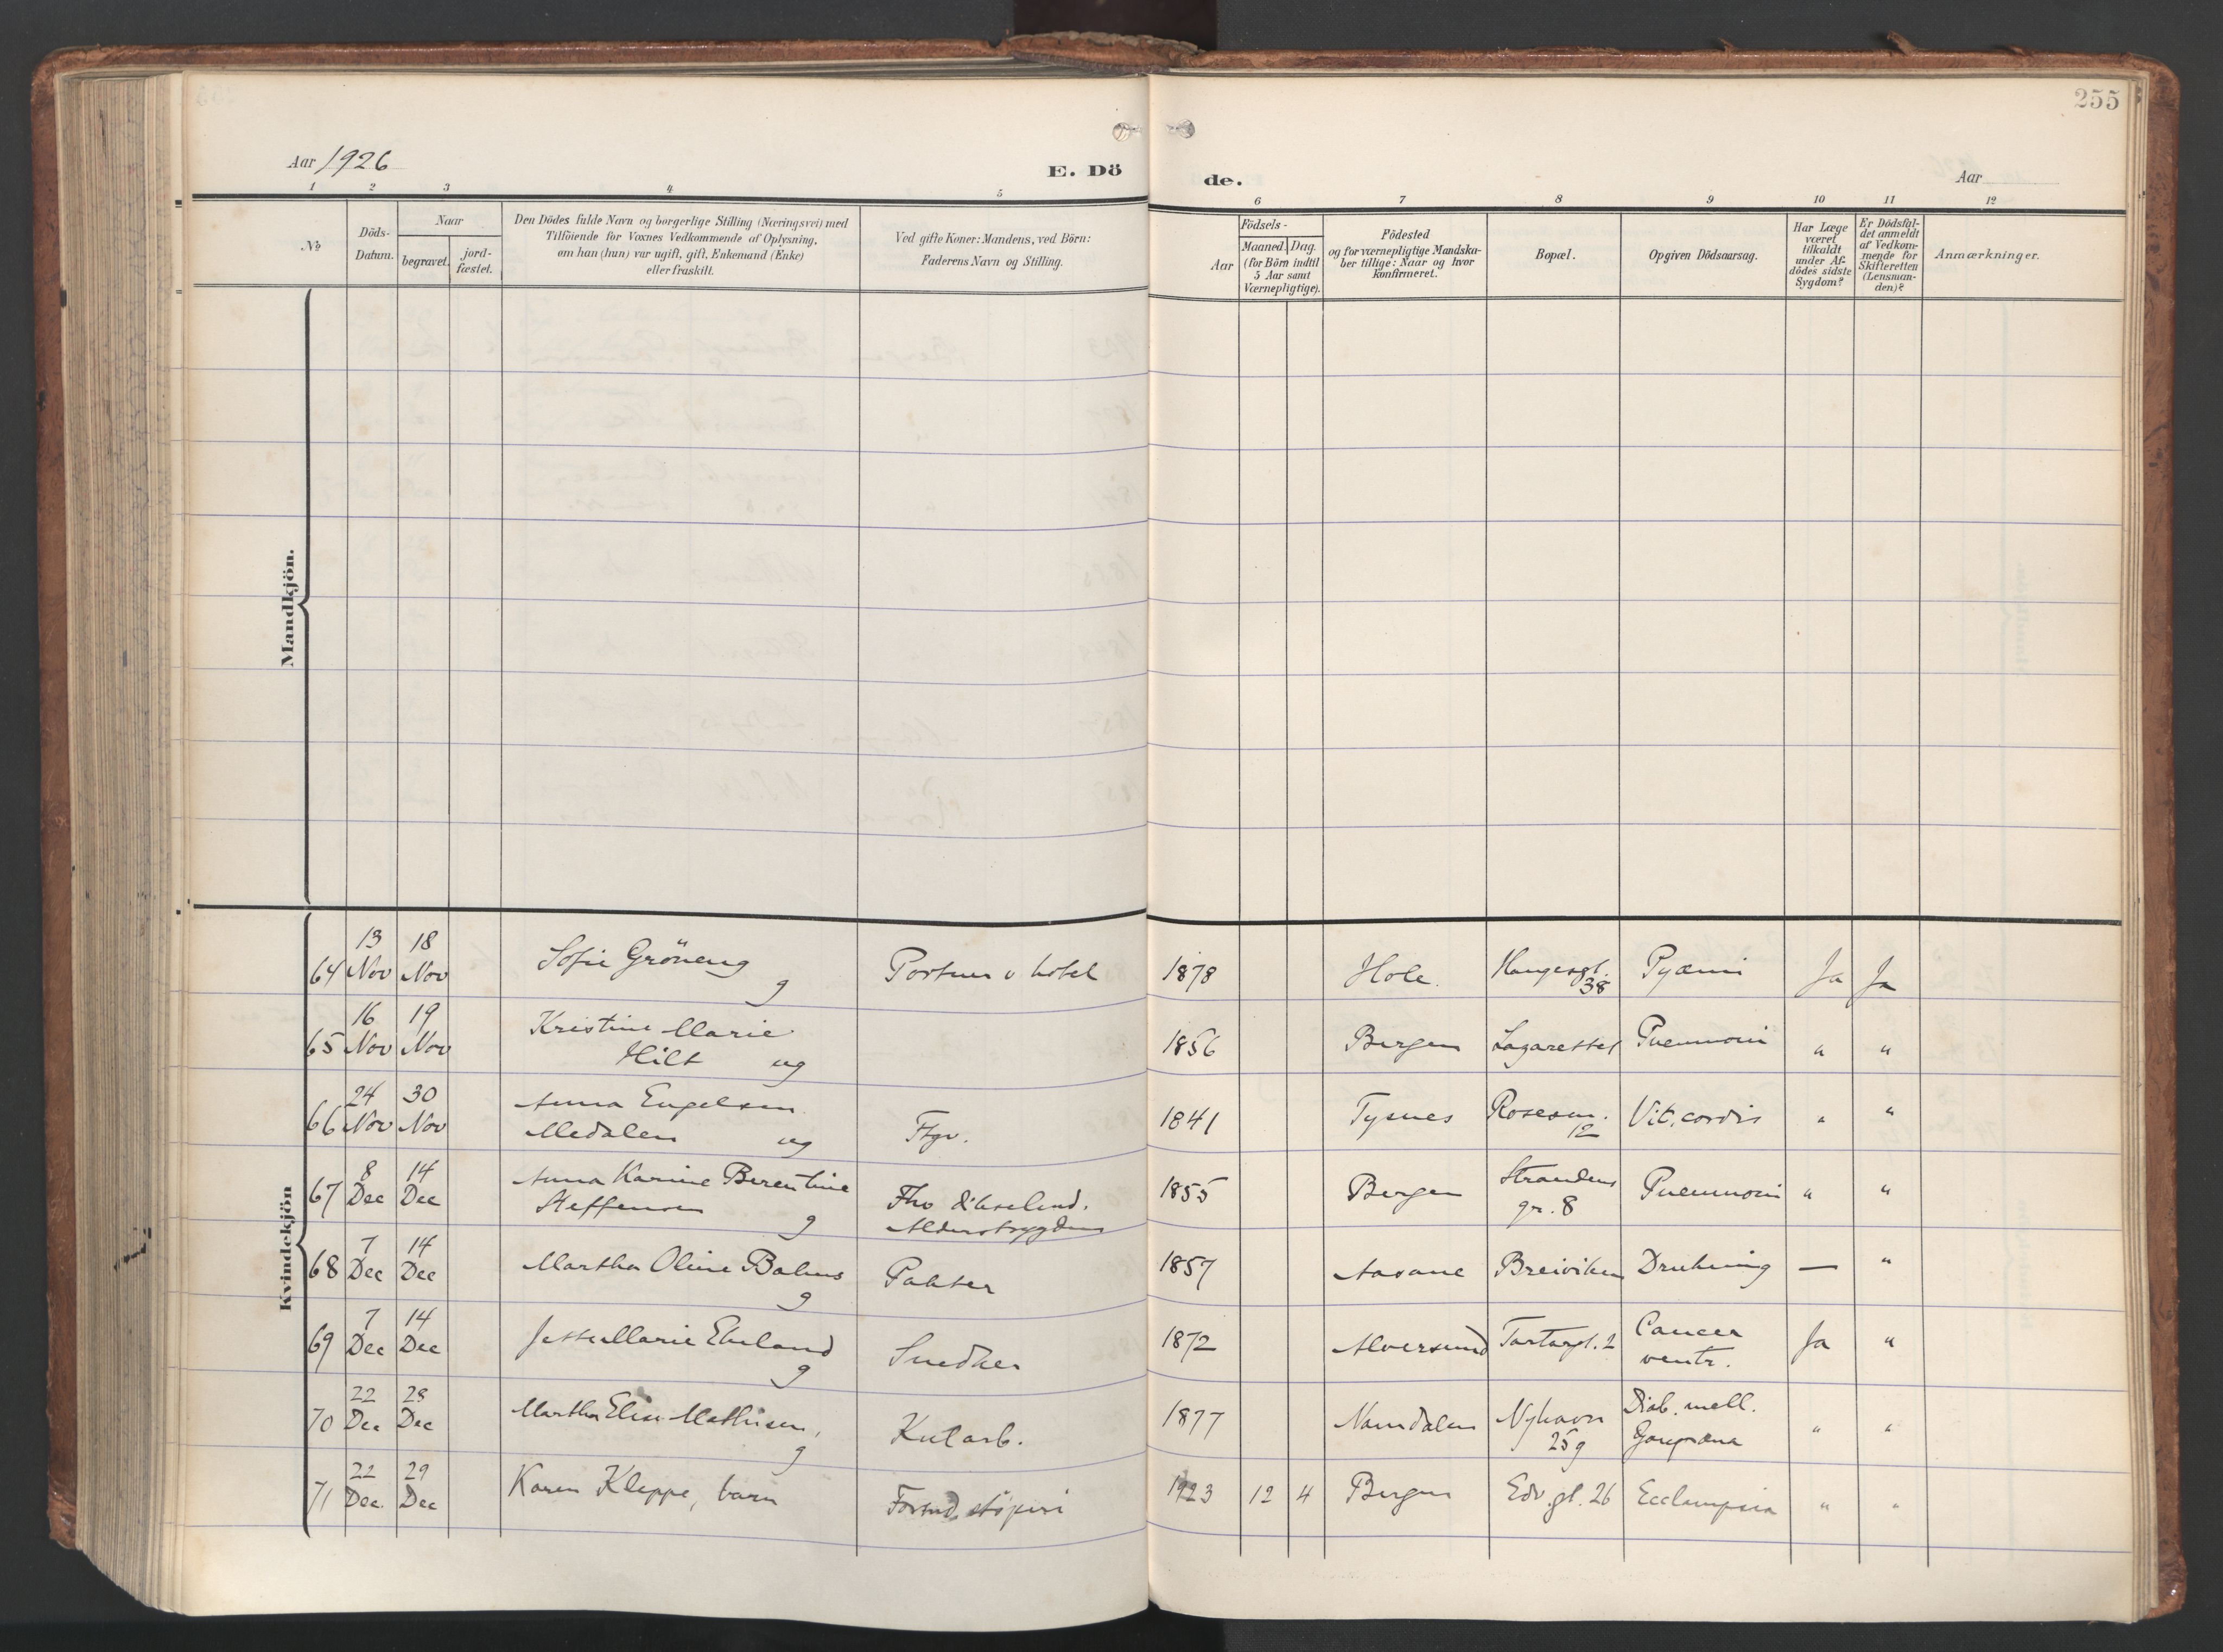 255
Aar 1926
E. Dö
de.
Aar
1 2 3 4 5 6 7 8 9 10 11 12
No
Döds-
Datum.
Naar
begravet.
jord-
fæstet.
Den Dödes fulde Navn og borgerlige Stilling (Næringsvei) med
Tilföiende for Voxnes Vedkommende af Oplysning,
om han (hun) var ugift, gift, Enkemand (Enke)
eller fraskilt.
Ved gifte Koner: Mandens, ved Börn:
Faderens Navn og Stilling.
Födsels-
Aar
Maaned. Dag.
(for Börn indtil
5 Aar samt
Værnepligtige).
Födested
og for værnepligtige Mandska-
ber tillige: Naar og hvor
konfirmeret.
Bopæl.
Opgiven Dödsaarsag.
Har Læge
været
tilkaldt
under Af-
dödes sidste
Sygdom?
Er Dödsfal-
det anmeldt
af Vedkom-
mende for
Skifteretten
(Lensman-
den)?
Anmærkninger.
Mandkjön.
Kvindekjön
64 13 Nov 18 Nov Sofie Gröneng g Portner v hotel 1878 Hole. Haugesgt. 38 Pyæmi Ja Ja
65 16 Nov 19 Nov Kristine Marie
Hilt ug 1856 Bergen Lazarettet Pneumoni " "
66 24 Nov 30 Nov Anna Engelsen
Medalen ug Ftgv. 1841 Tysnes Rosesm. 12 Vit. cordis " "
67 8 Dec 14 Dec Anna Karine Berentine
Steffensen g Fhv
Alderstrygden 1855 Bergen Strandens
gr. 8 Pneumoni " "
68 7 Dec 14 Dec Martha Oline Bahus g Pakter 1857 Aasane Breiviken Drukning — "
69 7 Dec 14 Dec Marie Ekeland g Snedker 1872 Alversund Tartargt. 2 Cancer
ventr. Ja "
70 22 Dec 28 Dec Martha Elise Mathisen, g Kularb. 1877 Namdalen Nyhavn
25 g Diab. mell.
Gangræna " "
71 22 Dec. 29 Dec Karen Kleppe, barn Formd. støperi 1923 12 4 Bergen Edv. gt. 26 Ecclampsia " "